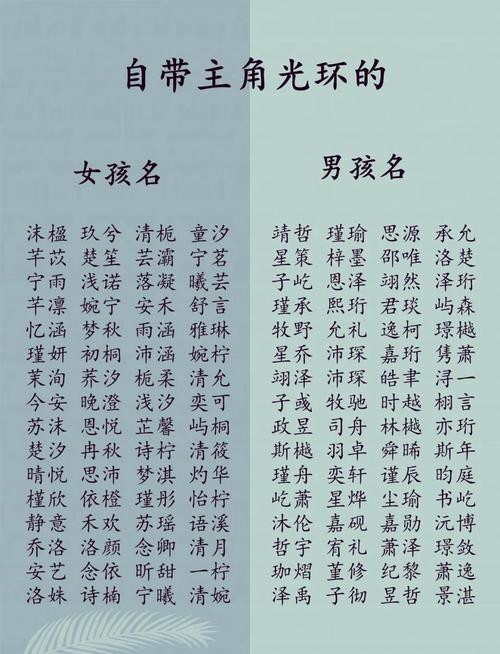 自带主角光环的
女孩名
沫楹 玖兮 清栀 童汐
芊苡 楚笙 芸灞 宁茗
宁雨 浅诺 落凝 曦芸
芊凛 婉宁 安禾 舒言
忆涵 梦秋 雨涵 雅琳
瑾妍 初桐 沛涵 婉柠
茉洵 荞汐 栀柔 清允
今安 晚澄 浅汐 奕可
苏沫 恩悦 芷馨 屿桐
楚汐 冉秋 诗柠 清筱
晴悦 思沛 梦淇 灼华
槿欣 依橙 瑾彤 怡柠
静意 禾欢 苏瑶 语溪
乔洛 洛颜 念卿 清月
安艺 念依 昕甜 一柠
洛姝 诗楠 宁曦 清婉
男孩名
靖哲 瑾瑜 思源 承允
星策 梓墨 邵唯 洛楚
子屹 恩泽 翊然 泽珩
瑾承 熙珩 君琰 屿森
牧野 允礼 逸柯 璟樾
星乔 沛琛 嘉珩 隽萧
翊泽 沛琛 皓聿 浔一
子彧 牧驰 时越 栩言
政昱 司舟 林樾 亦珩
斯樾 羽卓 舜晞 斯年
瑾舟 奕轩 谨辰 昀庭
屹萧 星烨 尘瑜 书屹
沐伦 嘉砚 嘉勋 沅博
哲宇 宥礼 萧泽 璟敛
珈熠 董修 纪黎 萧逸
泽禹 子彻 昱哲 景湛